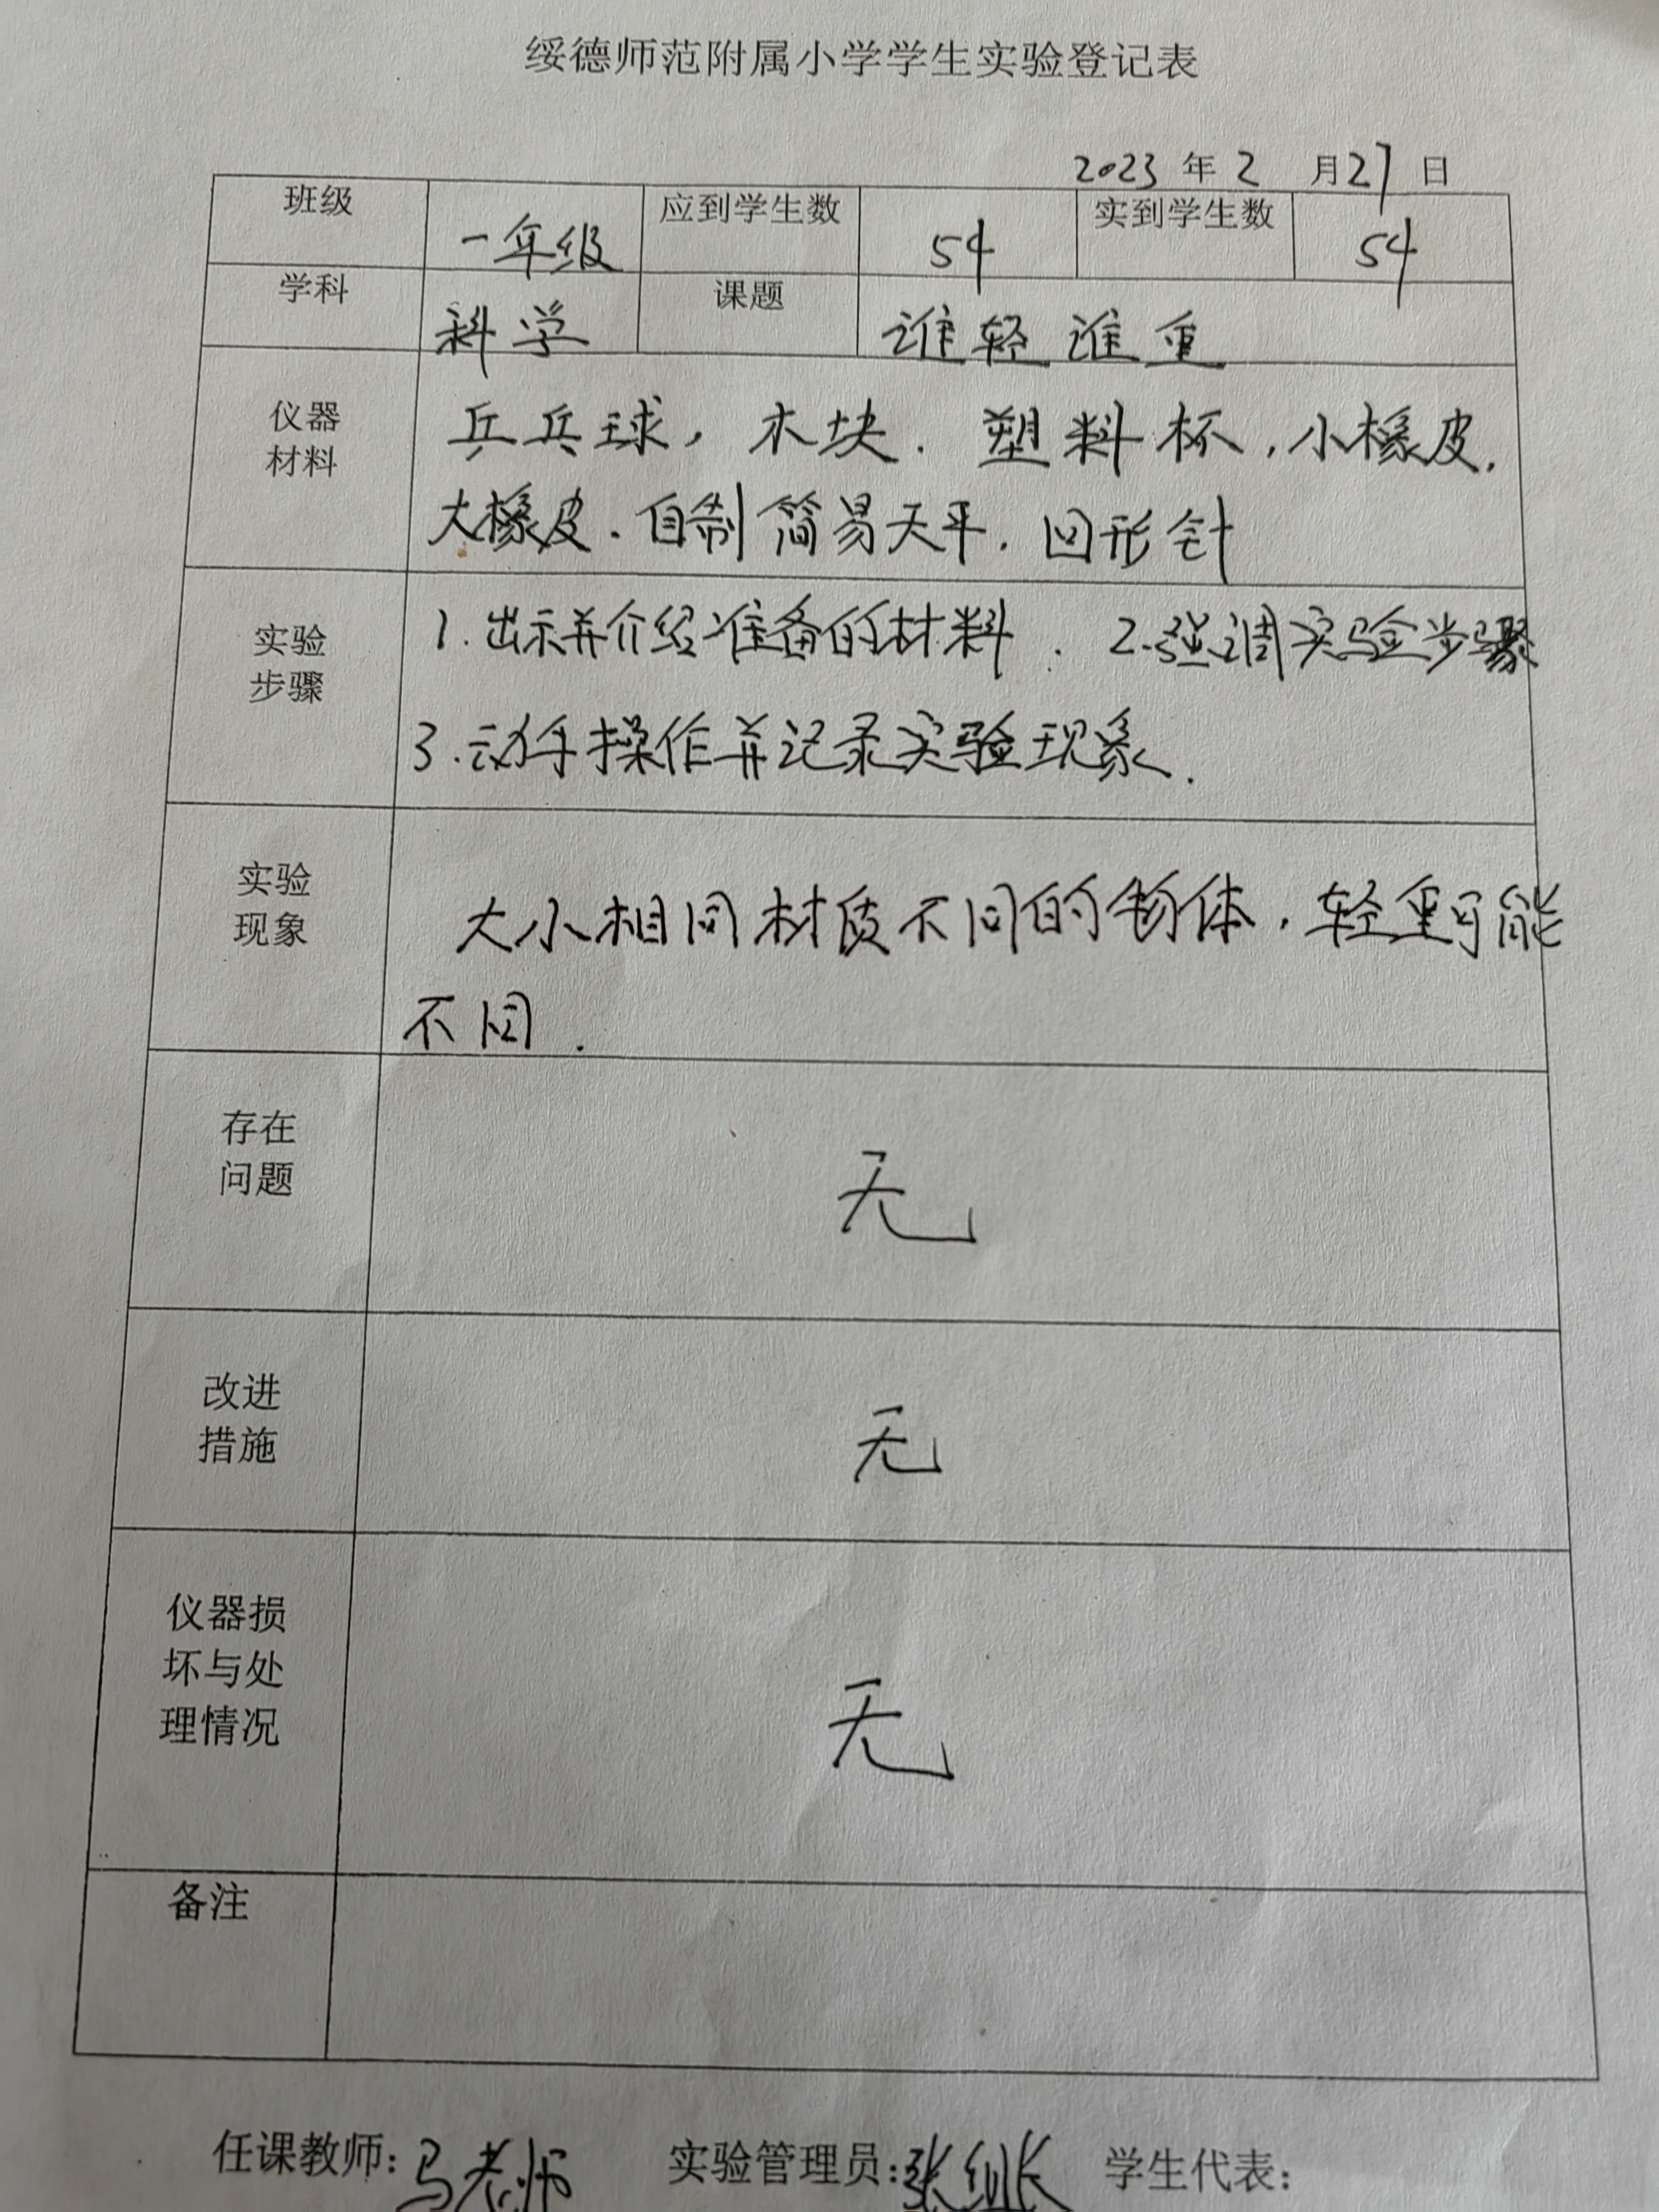 绥德师范附属小学学生实验登记表
2023 年 2 月 27 日
班级 一年级 应到学生数 54 实到学生数 54
学科 科学 课题 谁轻谁重
仪器材料 乒乓球，木块．塑料杯，小橡皮，
大橡皮．自制简易天平．回形针
实验步骤 1.出示并介绍准备的材料．2.强调实验步骤
3.动手操作并记录实验现象．
实验现象 大小相同材质不同的物体，轻重可能
不同．
存在问题 无
改进措施 无
仪器损坏与处理情况 无
备注
任课教师：马老师 实验管理员：张 学生代表：